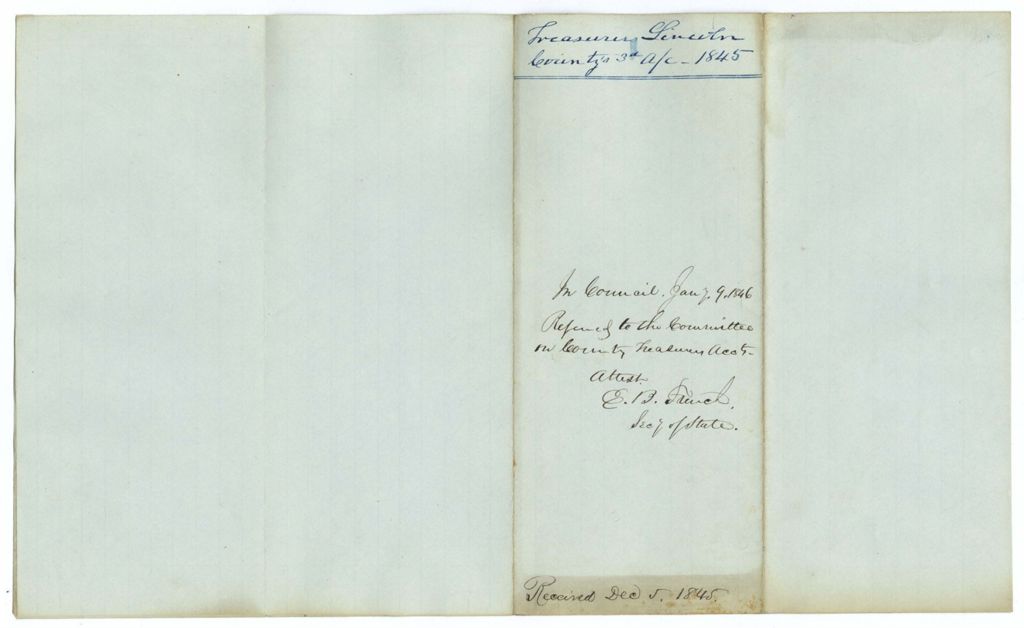 Treasurers Lincoln
Countys 3d A/c - 1845
In Council. Jany. 9. 1846
Referred to the Committee
on County Treasurers Accts-
Attest.
E. B. French,
Secy of State.
Received Dec 5. 1845.